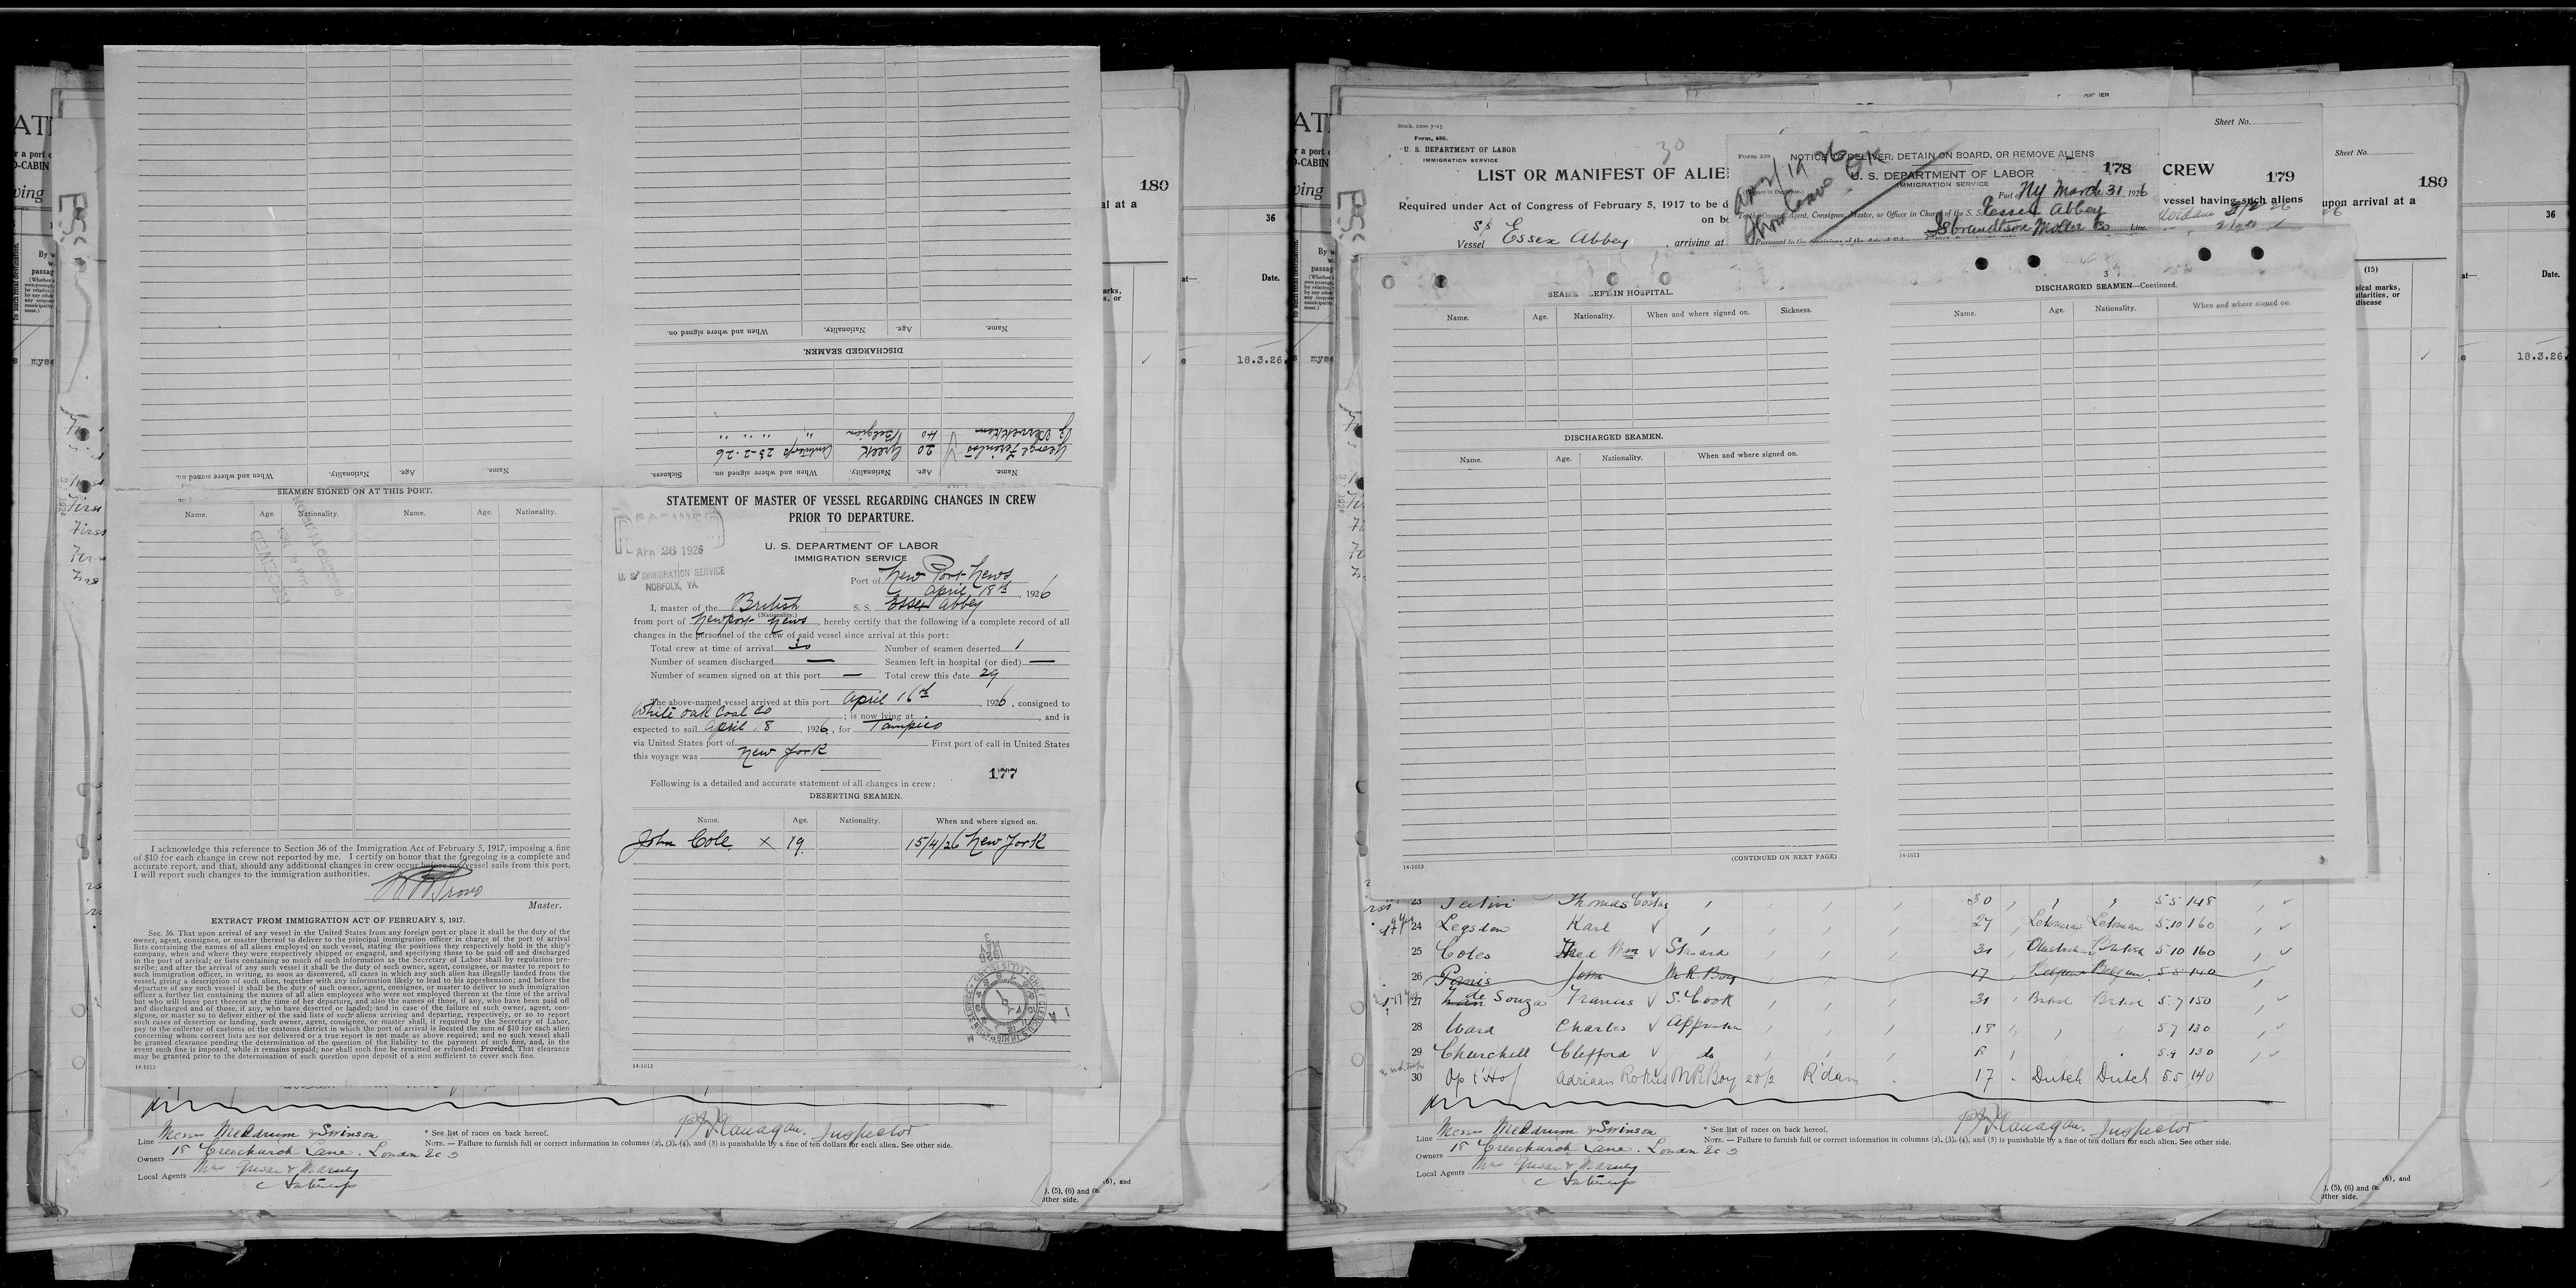 180
al at a
36
Date.
18.3.26
DISCHARGED SEAMEN.
Name. Age. Nationality. When and where signed on.
Name. Age. Nationality. When and where signed on. Sickness.
20 Greek 23-2-26
40 Belgian " " " "
Name. Age. Nationality. When and where signed on.
SEAMEN SIGNED ON AT THIS PORT.
Name. Age. Nationality. Name. Age. Nationality.
I acknowledge this reference to Section 36 of the Immigration Act of February 5, 1917, imposing a fine
of $10 for each change in crew not reported by me. I certify on honor that the foregoing is a complete and
accurate report, and that, should any additional changes in crew occur before my vessel sails from this port,
I will report such changes to the immigration authorities.
Master.
EXTRACT FROM IMMIGRATION ACT OF FEBRUARY 5, 1917.
Sec. 36. That upon arrival of any vessel in the United States from any foreign port or place it shall be the duty of the
owner, agent, consignee, or master thereof to deliver to the principal immigration officer in charge of the port of arrival
lists containing the names of all aliens employed on such vessel, stating the positions they respectively hold in the ship's
company, when and where they were respectively shipped or engaged, and specifying those to be paid off and discharged
in the port of arrival; or lists containing so much of such information as the Secretary of Labor shall by regulation pre-
scribe; and after the arrival of any such vessel it shall be the duty of such owner, agent, consignee, or master to report to
such immigration officer, in writing, as soon as discovered, all cases in which any such alien has illegally landed from the
vessel, giving a description of such alien, together with any information likely to lead to his apprehension; and before the
departure of any such vessel it shall be the duty of such owner, agent, consignee, or master to deliver to such immigration
officer a further list containing the names of all alien employees who were not employed thereon at the time of the arrival
but who will leave port thereon at the time of her departure, and also the names of those, if any, who have been paid off
and discharged and of those, if any, who have deserted or landed; and in case of the failure of such owner, agent, con-
signee, or master so to deliver either of the said lists of such aliens arriving and departing, respectively, or so to report
such cases of desertion or landing, such owner, agent, consignee, or master, shall, if required by the Secretary of Labor,
pay to the collector of customs of the customs district in which the port of arrival is located the sum of $10 for each alien
concerning whom correct lists are not delivered or a true report is not made as above required; and no such vessel shall
be granted clearance pending the determination of the question of the liability to the payment of such fine, and, in the
event such fine is imposed, while it remains unpaid; nor shall such fine be remitted or refunded: Provided, That clearance
may be granted prior to the determination of such question upon deposit of a sum sufficient to cover such fine.
14-1613
STATEMENT OF MASTER OF VESSEL REGARDING CHANGES IN CREW
PRIOR TO DEPARTURE.
APR 26 1926
U. S. IMMIGRATION SERVICE
NORFOLK, VA.
U. S. DEPARTMENT OF LABOR
IMMIGRATION SERVICE
Port of New Port News
April 18th, 1926
I, master of the British S. S. Essex Abbey
(Nationality.)
from port of Newport News, hereby certify that the following is a complete record of all
changes in the personnel of the crew of said vessel since arrival at this port:
Total crew at time of arrival 30 Number of seamen deserted 1
Number of seamen discharged — Seamen left in hospital (or died) —
Number of seamen signed on at this port — Total crew this date 29
The above-named vessel arrived at this port April 16th, 1926, consigned to
White Oak Coal Co; is now lying at , and is
expected to sail April 18, 1926, for Tampico
via United States port of First port of call in United States
this voyage was New York
177
Following is a detailed and accurate statement of all changes in crew:
DESERTING SEAMEN.
Name. Age. Nationality. When and where signed on.
John Cole x 19 15/4/26 New York
14-1613
Line Messrs Meldrum & Swinson
Owners 18 Creechurch Lane. London EC3
Local Agents
* See list of races on back hereof.
NOTE.—Failure to furnish full or correct information in columns (2), (3), (4), and (5) is punishable by a fine of ten dollars for each alien. See other side.
Flanagan. Inspector
), (5), (6) and
other side.
(6), and
Stock. 2000 7-25
Form, 680.
U. S. DEPARTMENT OF LABOR
IMMIGRATION SERVICE
30
LIST OR MANIFEST OF ALIE
Required under Act of Congress of February 5, 1917 to be d
on b
s/s
Vessel Essex Abbey, arriving at
Form 559
NOTICE TO DELIVER, DETAIN ON BOARD, OR REMOVE ALIENS
178
U. S. DEPARTMENT OF LABOR
IMMIGRATION SERVICE
Port of NY March 31 1926
Essex Abbey
Isbrandtsen Moller Co Line.
Sheet No.
CREW
179
vessel having such aliens
Sheet No.
180
upon arrival at a
36
(15)
Date.
18.3.26
SEAMEN LEFT IN HOSPITAL.
Name. Age. Nationality. When and where signed on. Sickness.
DISCHARGED SEAMEN.
Name. Age. Nationality. When and where signed on.
(CONTINUED ON NEXT PAGE)
14-1613
3
DISCHARGED SEAMEN—Continued.
Name. Age. Nationality. When and where signed on.
14-1613
23 Thomas 30 5 5 148
24 Legsden Karl 27 5.10 160
25 Coles Wm Steward 31 British 5 10 160
26 John M.R. Boy 17 Belgium Belgian 5.5 140
27 de Souza Francis S. Cook 31 British British 5.7 150
28 Ward Charles Apprentice 18 5 7 130
29 Churchill Clifford do 18 5.9 130
30 Op t'Hof Adriaan M.R. Boy 28/2 R'dam 17 Dutch Dutch 5.5 140
Line Messrs Meldrum & Swinson
Owners 18 Creechurch Lane. London EC3
Local Agents
* See list of races on back hereof.
NOTE.—Failure to furnish full or correct information in columns (2), (3), (4), and (5) is punishable by a fine of ten dollars for each alien. See other side.
Flanagan. Inspector
), (5), (6) and
other side.
(6), and